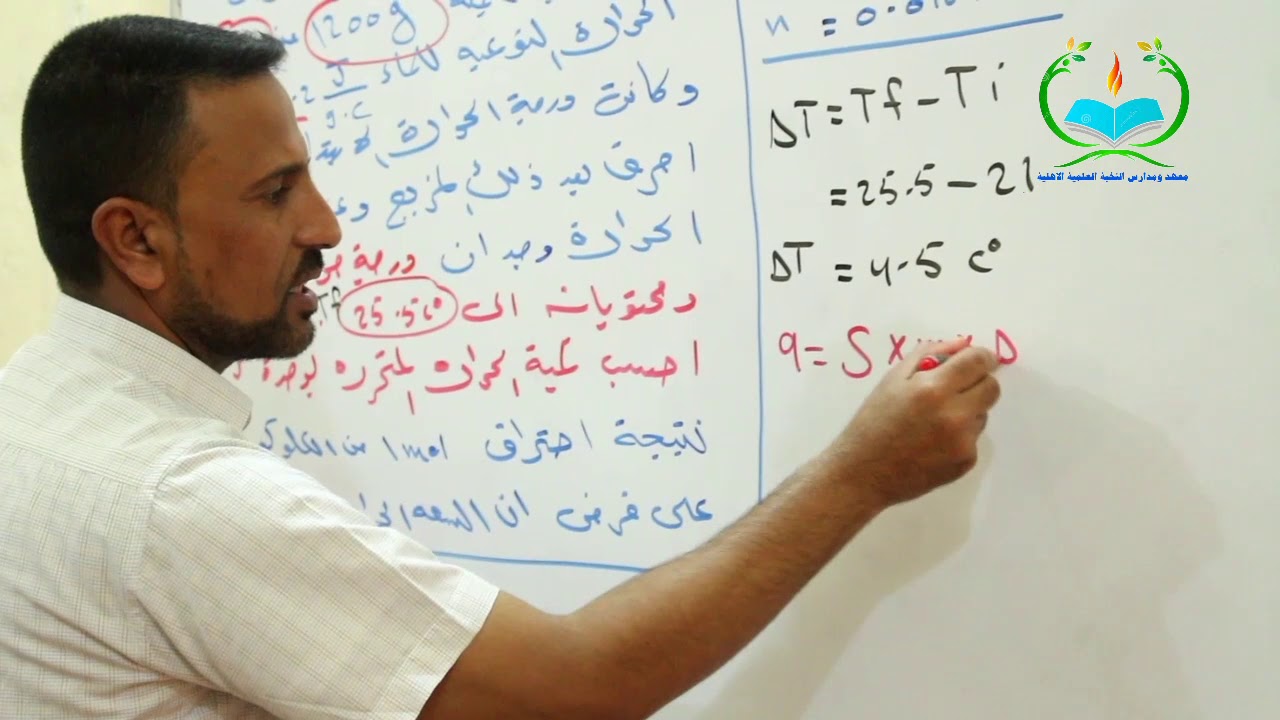 1200g من
الحرارة النوعية للماء J
g.c
وكانت درجة الحرارة
احرق بعد ذلك المزيج
الحرارة وجد ان درجة
ومحتوياته الى 25.5c° Tf
احسب كمية الحرارة المتحررة بوحدة
نتيجة احتراق 1mol من
على فرض ان السعة
n = 0.01
ΔT = Tf - Ti
= 25.5 - 21
ΔT = 4.5 c°
q = S x m x Δ
معهد ومدارس النخبة العلمية الاهلية